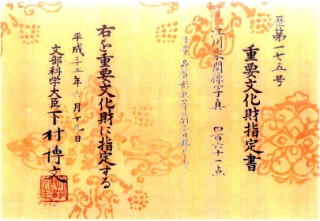 歴第一七五号
重要文化財指定書
江川家関係写真 四百六十一点
右を重要文化財に指定する
平成二十五年六月十九日
文部科学大臣 下村博文